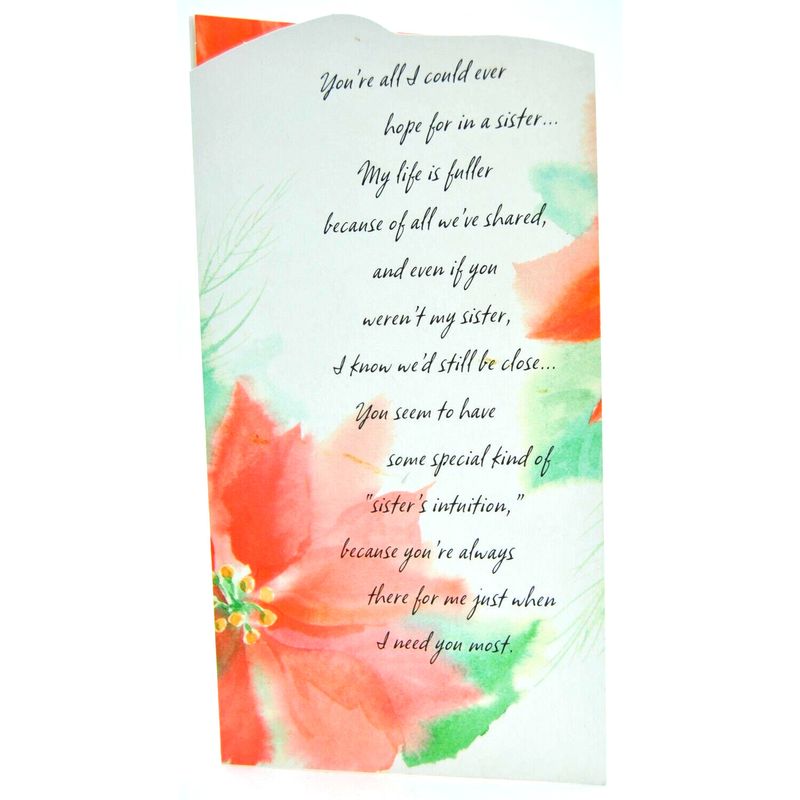 You're all I could ever
hope for in a sister...
My life is fuller
because of all we've shared,
and even if you
weren't my sister,
I know we'd still be close...
You seem to have
some special kind of
"sister's intuition,"
because you're always
there for me just when
I need you most.